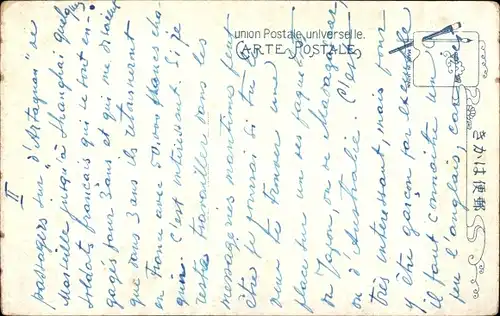 union Postale universelle.
CARTE POSTALE
きかは便郵
II
passagers sur "d'Artagnan" de
Marseille jusqu'à Shanghai quelq
soldats français qui se sont en-
gagés pour 3 ans et qui me disaient
que dans 3 ans ils retourneront
en France avec 50.000 francs cha-
qun. C'est intéressant. Si je
reste travailler dans les
messageries maritimes peut
être je pourrai si tu
veux te trouver une
place sur un des paquebots
du Japon, ou de Madagascar,
ou d'Australie. C'est
très interessant, mais pour
y être garçon par exemple
il faut connaître un
peu l'anglais, car